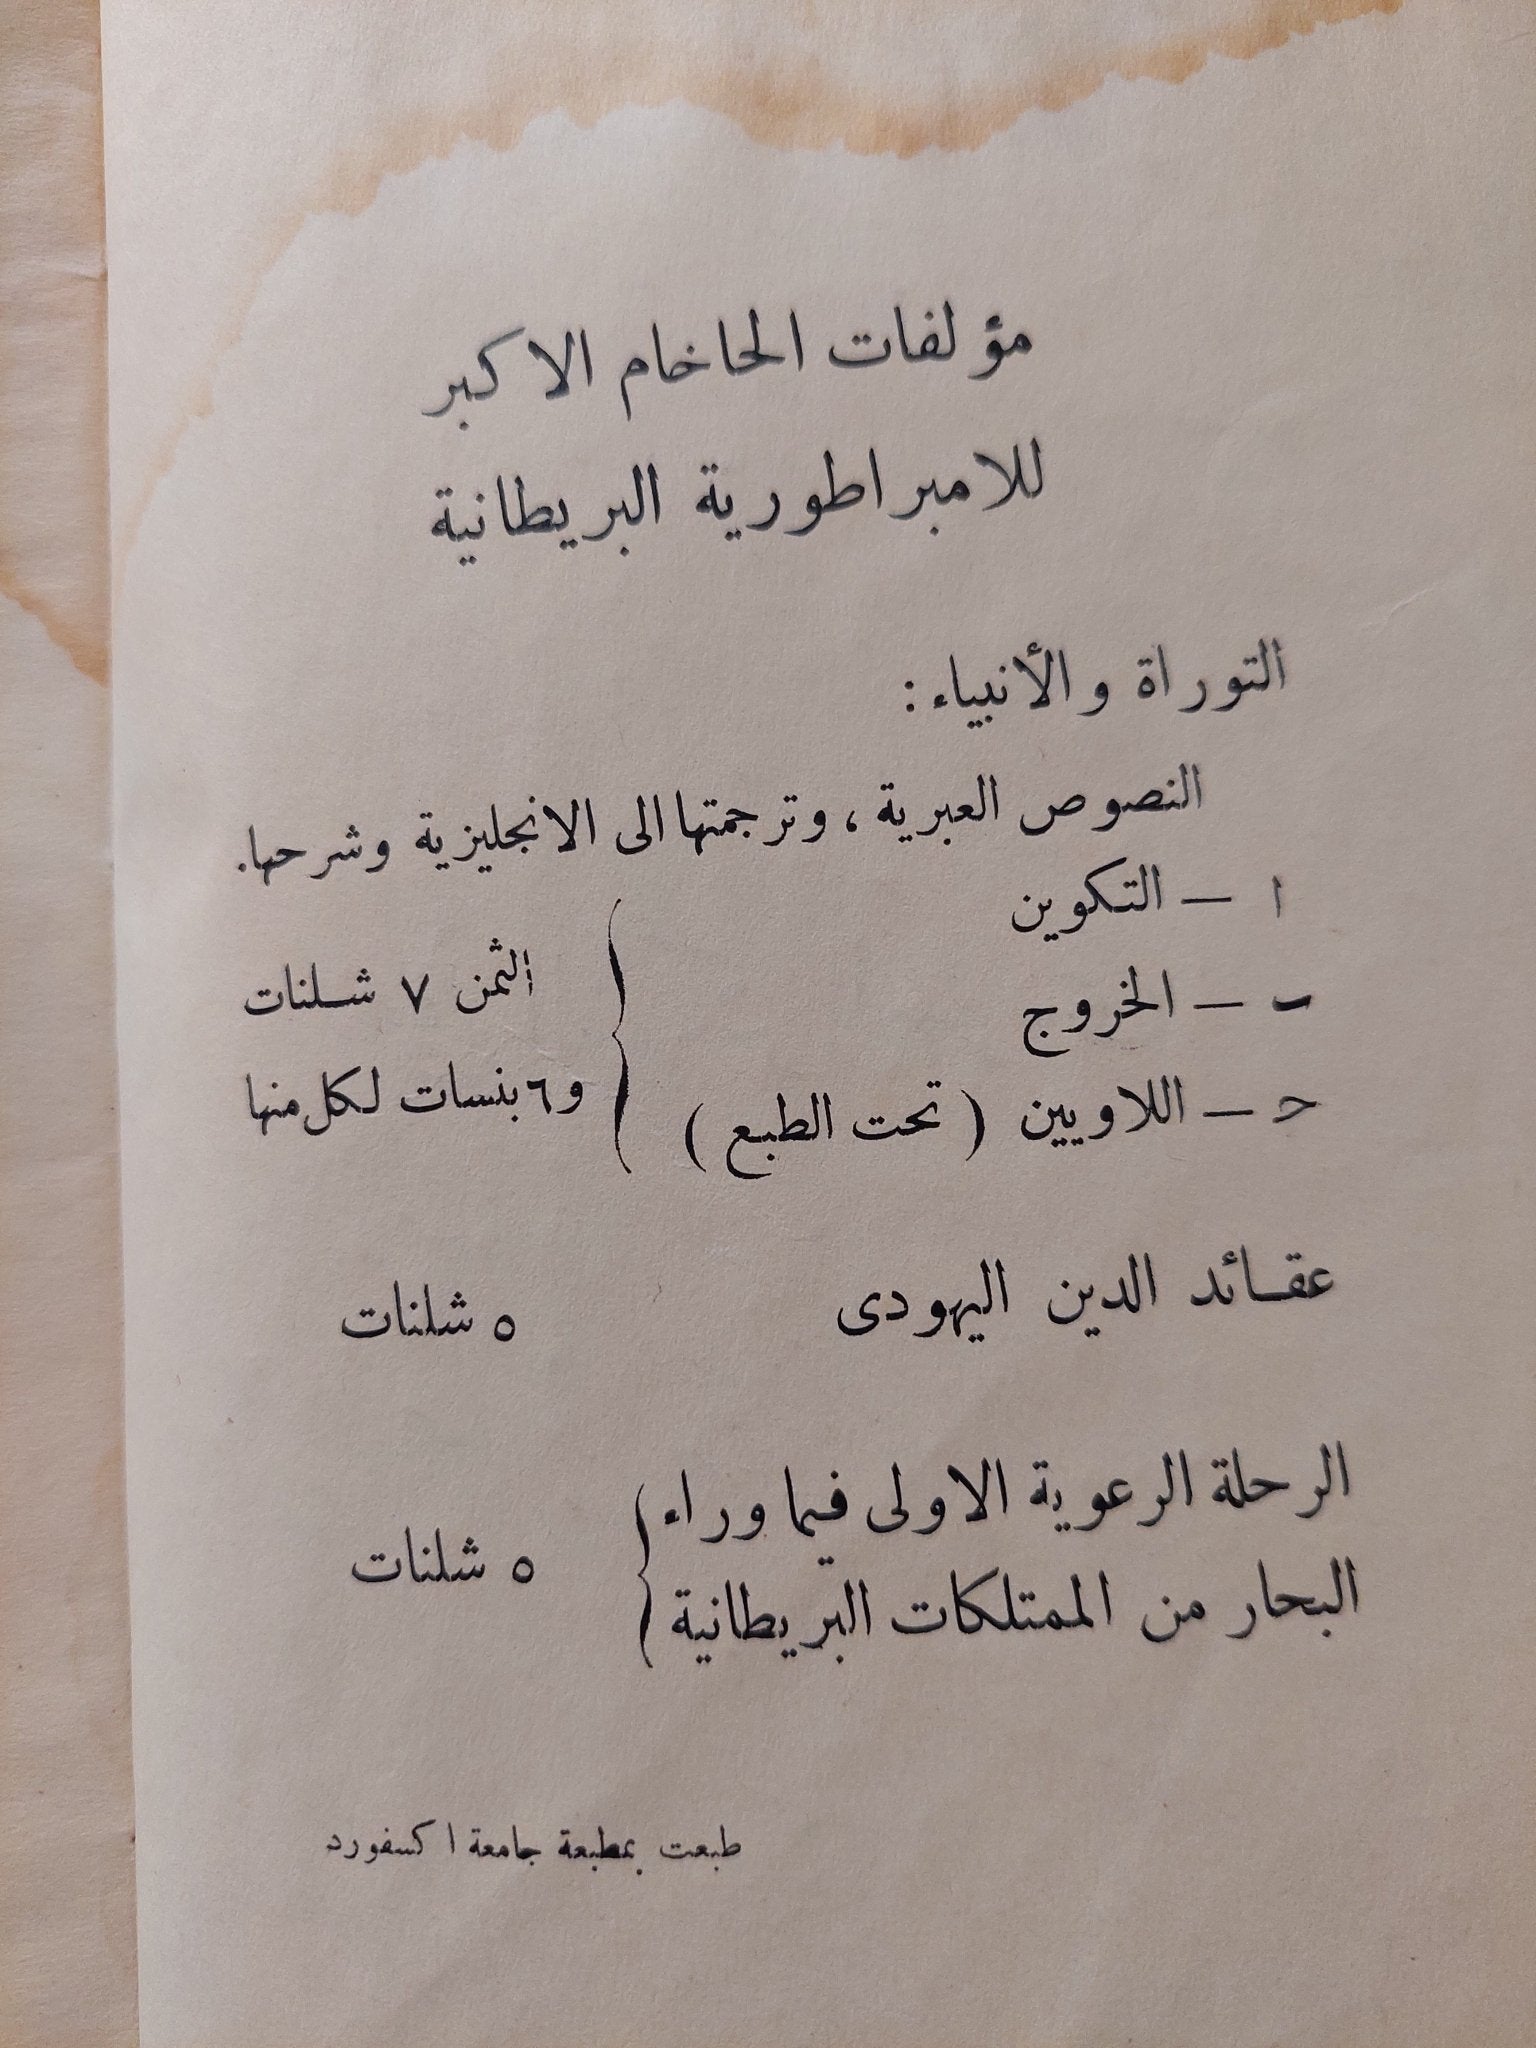 مؤلفات الحاخام الاكبر
للامبراطورية البريطانية
التوراة والأنبياء :
النصوص العبرية ، وترجمتها الى الانجليزية وشرحها.
ا — التكوين
ب — الخروج
ح — اللاويين ( تحت الطبع )
الثمن ٧ شلنات
و٦ بنسات لكل منها
عقائد الدين اليهودى ٥ شلنات
الرحلة الرعوية الاولى فيما وراء
البحار من الممتلكات البريطانية
٥ شلنات
طبعت بمطبعة جامعة اكسفورد